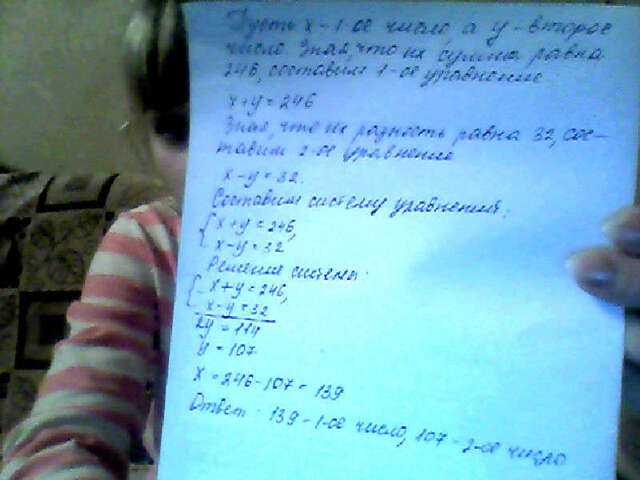 Пусть x - 1-ое число, а y - второе
число. Зная, что их сумма равна
246, составим 1-ое уравнение
x+y=246
Зная, что их разность равна 32, сос-
тавим 2-ое уравнение
x-y=32.
Составим систему уравнений:
{x+y=246,
x-y=32
Решение системы:
{x+y=246,
-x-y=32
2y=114
y=107
x=246-107=139
Ответ: 139-1-ое число, 107-2-ое число